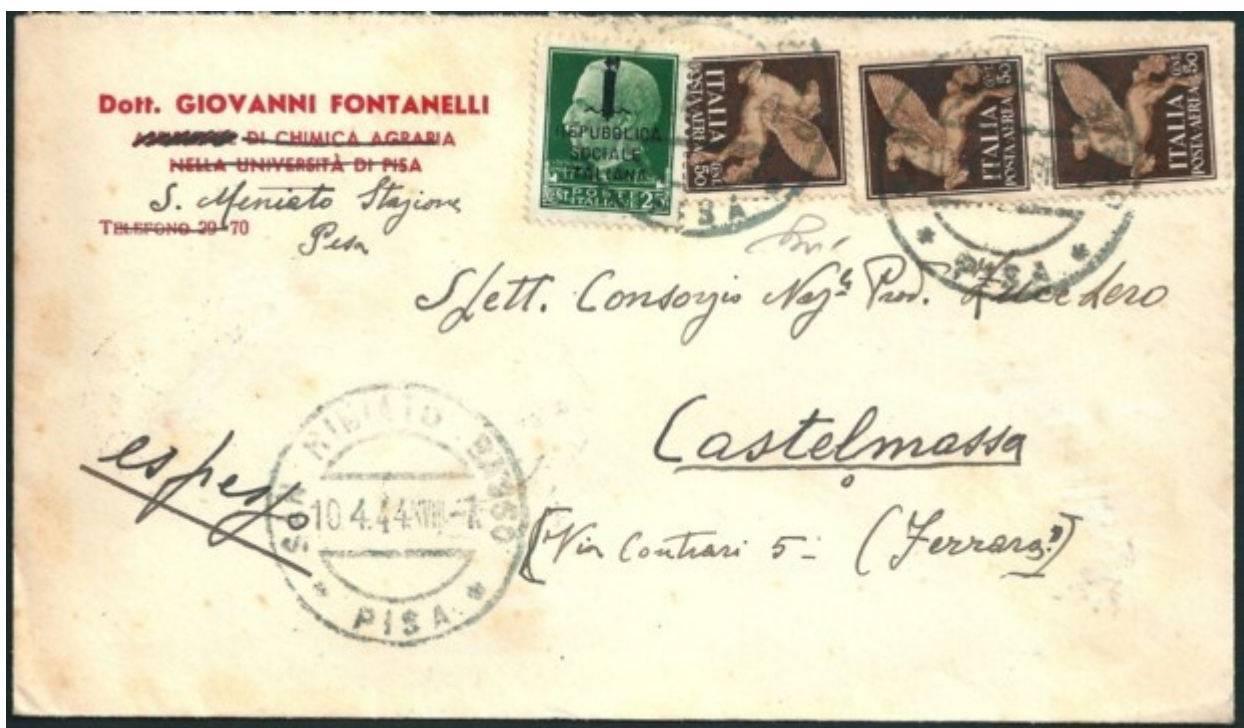 Dott. GIOVANNI FONTANELLI
DI CHIMICA AGRARIA
NELLA UNIVERSITÀ DI PISA
S. Miniato Stazione
TELEFONO 29-70
Pisa
REPUBBLICA
SOCIALE
ITALIANA
POSTE
ITALIANE
25
ITALIA
POSTA AEREA
50
ITALIA
POSTA AEREA
50
ITALIA
POSTA AEREA
50
PISA
* PISA *
Spett. Consorzio Naz.le Prod. Zucchero
Castelmassa
espresso
SAN MINIATO BASSO
10 4.44
* PISA *
(Via Contrari 5 - (Ferrara)